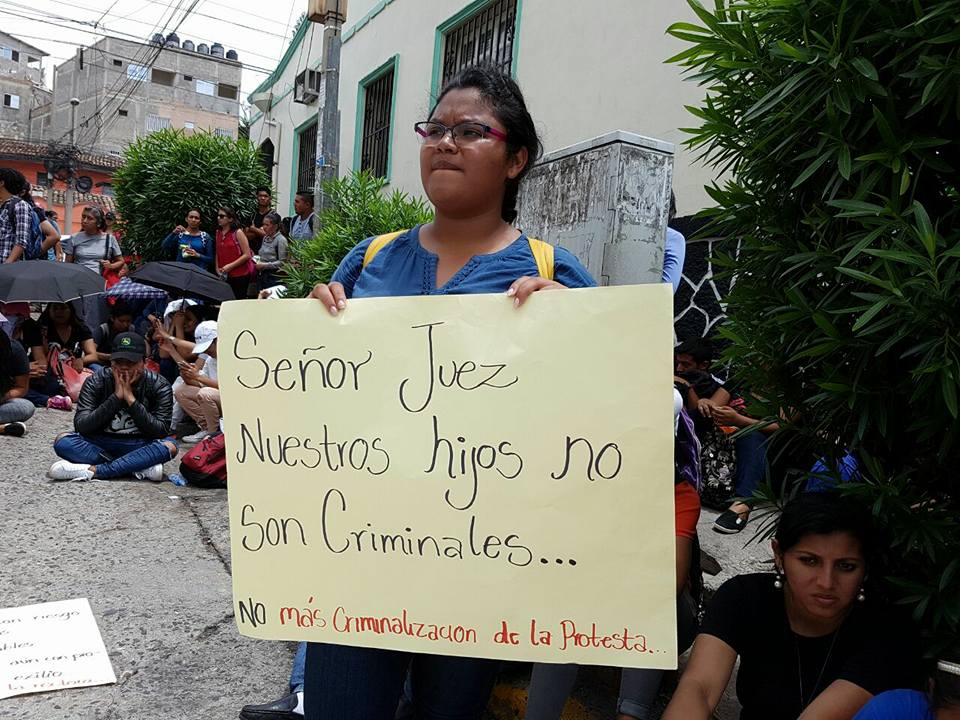 Señor Juez
Nuestros hijos no
son Criminales...
No más Criminalizacion de la Protesta...
on riesgo
ables
aún con pro
exilio
la rectora...